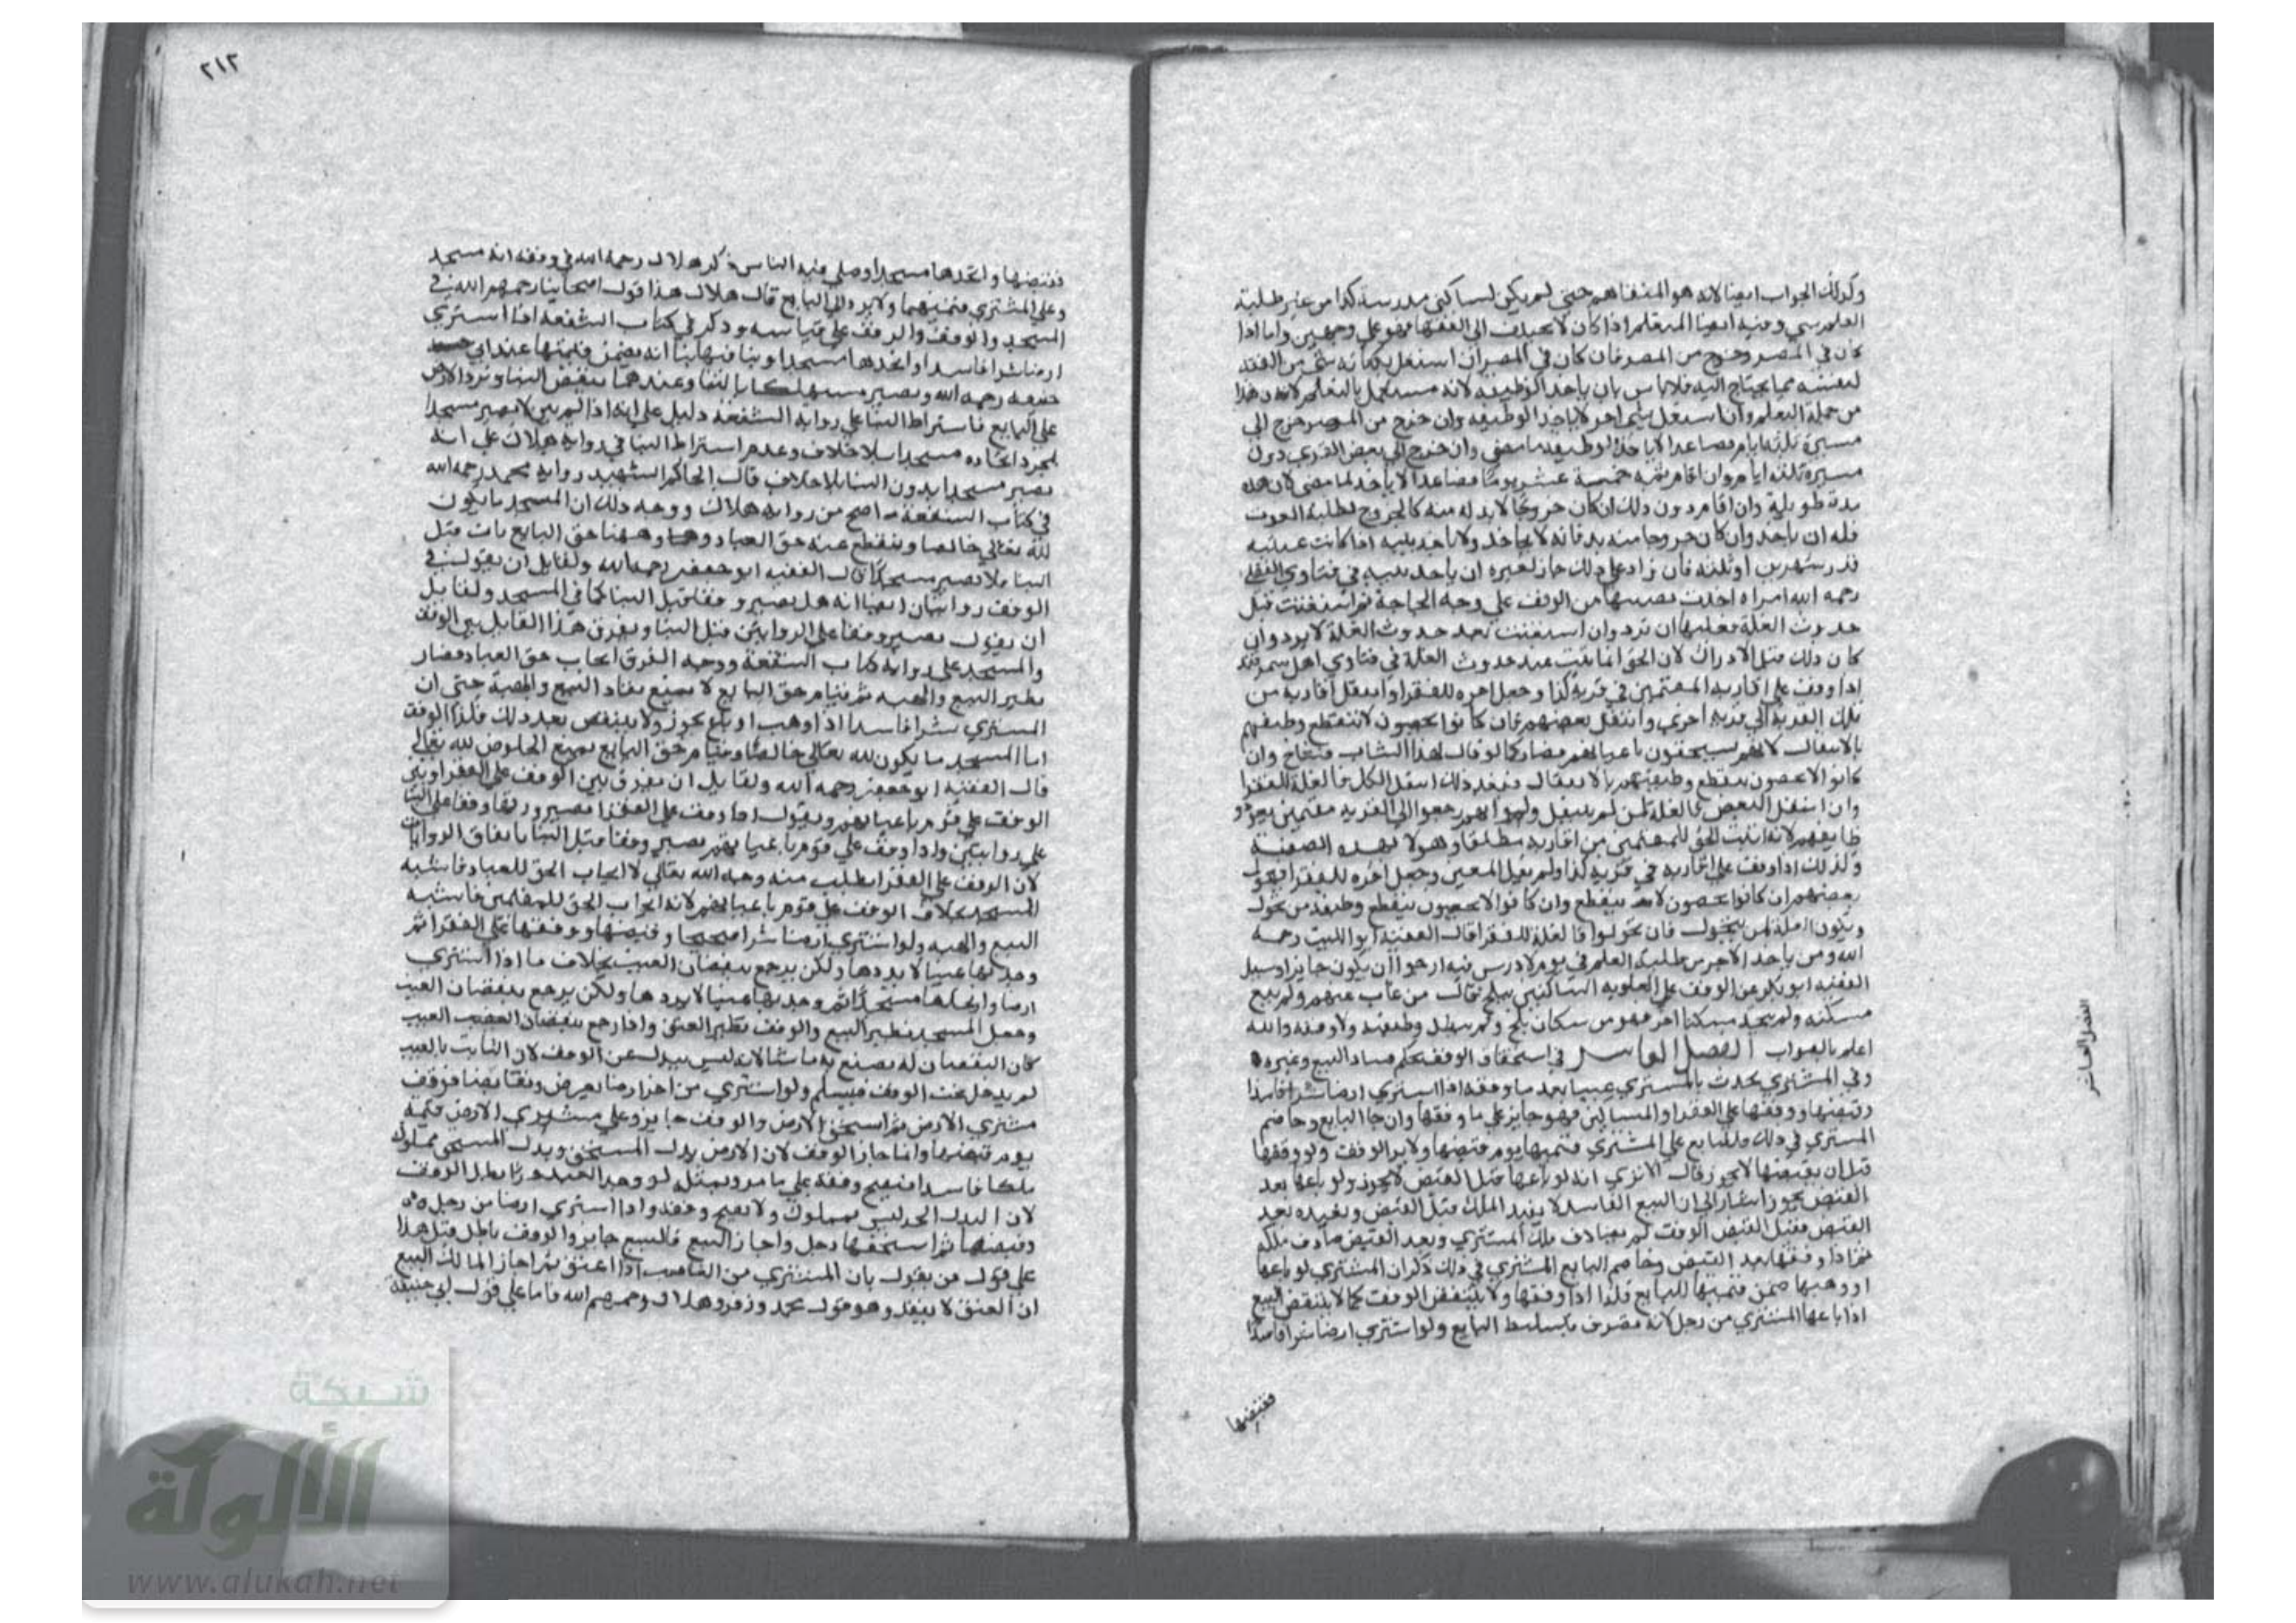 وكذلك الجواب ايضا لانه هو المتفاهم حتى لم يكن لساكني مدرسة كذا من غير طلبة
العلم شي وفيه ايضا المتعلم اذا كان لا يختلف الى الفقها فهو على وجهين واما اذا
كان في المصر وخرج من المصر فان كان في المصر ان اشتغل بكتابة شي من الفقه
لنفسه مما يحتاج اليه فلا باس بان ياخذ الوظيفه لانه مشتغل بالتعلم لانه وهذا
من جملة التعلم وان اشتغل بشي اخر لا ياخذ الوظيفه وان خرج من المصر خرج الى
مسيرة ثلثه ايام فصاعدا لا ياخذ الوظيفه ما مضى وان خرج الى بعض القرى دون
مسيرة ثلثه ايام وان اقام ثمه خمسة عشر يوما فصاعدا لا ياخذ لما مضى لان هذه
مدة طويلة وان اقام دون ذلك ان كان خروجا لابد له منه كالخروج لطلب القوت
فله ان ياخذ وان كان خروجا منه بد فانه لا ياخذ ولا ياخذ بيته اذا كانت غيبته
قدر شهرين او ثلثه فان زاد على ذلك جاز لغيره ان ياخذ بيته في فتاوي الفضلي
رحمه الله امراه اخذت نصيبها من الوقف على وجه الحاجة ثم استغنت قبل
حدوث الغلة فعليها ان ترد وان استغنت بعد حدوث الغلة لا ترد وان
كان ذلك قبل الادراك لان الحق انما يثبت عند حدوث الغلة في فتاوي اهل سمرقند
اذا وقف على اقاربه المقيمين في قرية كذا وجعل اخره للفقرا وانتقل اقاربه من
تلك القرية الى قرية اخرى وانتقل بعضهم فان كانوا يحصون لا تنقطع وظيفتهم
بالانتقال لانهم يستحقون باعيانهم فصار كما لو قال لهذا الشاب فشاخ وان
كانوا لا يحصون ينقطع وظيفتهم بالانتقال فبعد ذلك انتقل الكل فالغلة للفقرا
وان انتقل البعض فالغلة لمن لم ينتقل ولو انهم رجعوا الى القرية مقيمين يعود
وظايفهم لانه اثبت الحق للمقيمين من اقاربه مطلقا وهولا بهذه الصفة
وكذلك اذا وقف على اقاربه في قرية كذا ولم يقل المقيمين وجعل اخره للفقرا فتحول
بعضهم ان كانوا يحصون لا ينقطع وان كانوا لا يحصون ينقطع وظيفة من تحول
ويكون الغلة لمن لم يتحول فان تحولوا فالغلة للفقرا قال الفقيه ابو الليث رحمه
الله ومن ياخذ الاجر من طلبة العلم في يوم لا درس فيه ارجو ان يكون جايزا وسيل
الفقيه ابو بكر عن الوقف على العلويه الساكنين ببلخ فقال من غاب عنهم ولم يبع
مسكنه ولم يتخذ مسكنا اخر فهو من سكان بلخ ولم يبطل وظيفته ولا وقفه والله
اعلم بالصواب الفصل العاشر في استحقاق الوقف بحكم فساد البيع وغيره
وفي المشتري يحدث بالمشترى عيبا بعد ما وقفه اذا اشترى ارضا شرا فاسدا
وقبضها ووقفها على الفقرا والمساكين فهو جايز على ما وقفها وان جا البايع وخاصم
المشتري في ذلك فللبايع على المشتري قيمتها يوم قبضها ولا يرد الوقف ولو وقفها
قبل ان يقبضها لا يجوز قال الا ترى انه لو باعها قبل القبض لا يجوز ولو باعها بعد
القبض يجوز اشار الى ان البيع الفاسد لا يفيد الملك قبل القبض ويفيده بعد
القبض فقبل القبض الوقف لم يصادف ملك المشتري وبعد القبض صادف ملكه
ثم اذا وقفها بعد القبض وخاصم البايع المشتري في ذلك ذكر ان المشتري لو باعها
او وهبها ضمن قيمتها للبايع فكذا اذا وقفها ولا ينتقض الوقف كما لا ينتقض البيع
اذا باعها المشتري من رجل لانه تصرف بتسليط البايع ولو اشترى ارضا شرا فاسدا
فقبضها
الفصل العاشر
٢١٢
فقبضها واتخذها مسجدا وصلى فيه الناس ذكر هلال رحمه الله في وقفه انه مسجد
وعلى المشتري قيمتها ولا يرد الى البايع قال هلال هذا قول اصحابنا رحمهم الله في
المسجد والوقف والوقف على قياسه وذكر في كتاب الشفعه اذا اشترى
ارضا شرا فاسدا واتخذها مسجدا وبنا فيها بنا انه يضمن قيمتها عند ابي
حنيفه رحمه الله ويصير مستهلكا بالبنا وعندهما ينقض البنا وترد الارض
على البايع فاشتراط البنا على رواية الشفعه دليل على انه اذا لم يبن لا يصير مسجدا
بمجرد اتخاذه مسجدا بلا خلاف وعدم اشتراط البنا في رواية هلال على انه
يصير مسجدا بدون البنا بلا خلاف قال الحاكم الشهيد رواية محمد رحمه الله
في كتاب الشفعة اصح من رواية هلال ووجه ذلك ان المسجد ما يكون
لله تعالى خالصا وينقطع عنه حق العباد وههنا حق البايع باق قبل
البنا فلا يصير مسجدا قال الفقيه ابو جعفر رحمه الله ولقايل ان يقول في
الوقف روايتان ايضا انه هل يصير وقفا قبل البنا كما في المسجد ولقايل
ان يقول يصير وقفا على الروايتين قبل البنا ويفرق هذا القايل بين الوقف
والمسجد على رواية كتاب الشفعة ووجه الفرق ايجاب حق العباد فصار
نظير البيع والهبه ثم قيام حق البايع لا يمنع نفاذ البيع والهبة حتى ان
المشتري شرا فاسدا اذا وهب او باع يجوز ولا ينتقض بعد ذلك فكذا الوقف
اما المسجد ما يكون لله تعالى خالصا وقيام حق البايع يمنع الخلوص لله تعالى
قال الفقيه ابو جعفر رحمه الله ولقايل ان يفرق بين الوقف على الفقرا وبين
الوقف على قوم باعيانهم ويقول اذا وقف على الفقرا يصير وقفا على البنا
على روايتين واذا وقف على قوم باعيانهم يصير وقفا قبل البنا باتفاق الروايات
لان الوقف على الفقرا يطلب منه وجه الله تعالى لا ايجاب الحق للعباد فاشبه
المسجد بخلاف الوقف على قوم باعيانهم لانه ايجاب الحق فاشبه
البيع والهبه ولو اشترى ارضا شرا صحيحا وقبضها ووقفها على الفقرا ثم
وجد بها عيبا لا يردها ولكن يرجع بنقصان العيب بخلاف ما اذا اشترى
ارضا واتخذها مسجدا ثم وجد بها عيبا لا يردها ولكن يرجع بنقصان العيب
وجعل المسجد نظير البيع والوقف نظير العتق واذا رجع بنقصان العيب
كان النقصان له يصنع به ما شا لانه ليس ببدل عن الوقف لان الثابت بالعيب
لم يدخل تحت الوقف فيسلم ولو اشترى من اخر ارضا بعرض وتقابضا فوقف
مشتري الارض ثم استحق الارض والوقف جايز وعلى مشتري الارض قيمته
يوم قبضها وانما جاز الوقف لان الارض بدل المستحق وبدل المستحق مملوك
ملكا فاسدا فيصح وقفه على ما مر وبمثله لو وجد العبد حرا بطل الوقف
لان البدل الحر ليس بمملوك ولا يصح وقفه واذا اشترى ارضا من رجل
وقبضها ثم استحقها رجل واجاز البيع فالبيع جايز والوقف باطل قبل هذا
على قول من يقول بان المشتري من الغاصب اذا اعتق ثم اجاز المالك البيع
ان العتق لا ينفذ وهو قول محمد وزفر وهلال رحمهم الله فاما على قول ابي حنيفة
شبكة
الألوكة
www.alukah.net